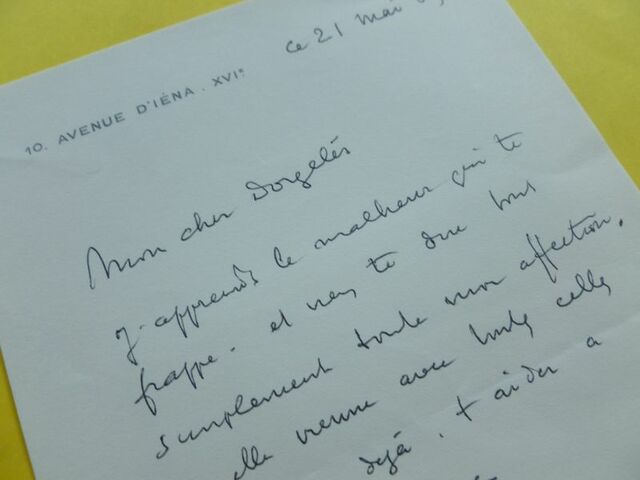 ce 21 mai
10. AVENUE D'IÉNA. XVIᵉ
Mon cher Dorgelès
J'apprends le malheur qui te
frappe. et viens te dire tout
simplement toute mon affection.
elle vienne avec toutes celles
déjà. t'aider à